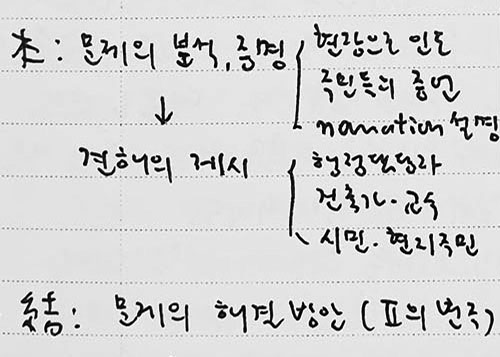 本: 문제의 분석, 증명 { 현장으로 인도
주민들의 증언
narration 설명
↓
견해의 제시 { 행정담당자
건축가·교수
시민·현지주민
結: 문제의 해결방안 (Ⅱ의 반복)